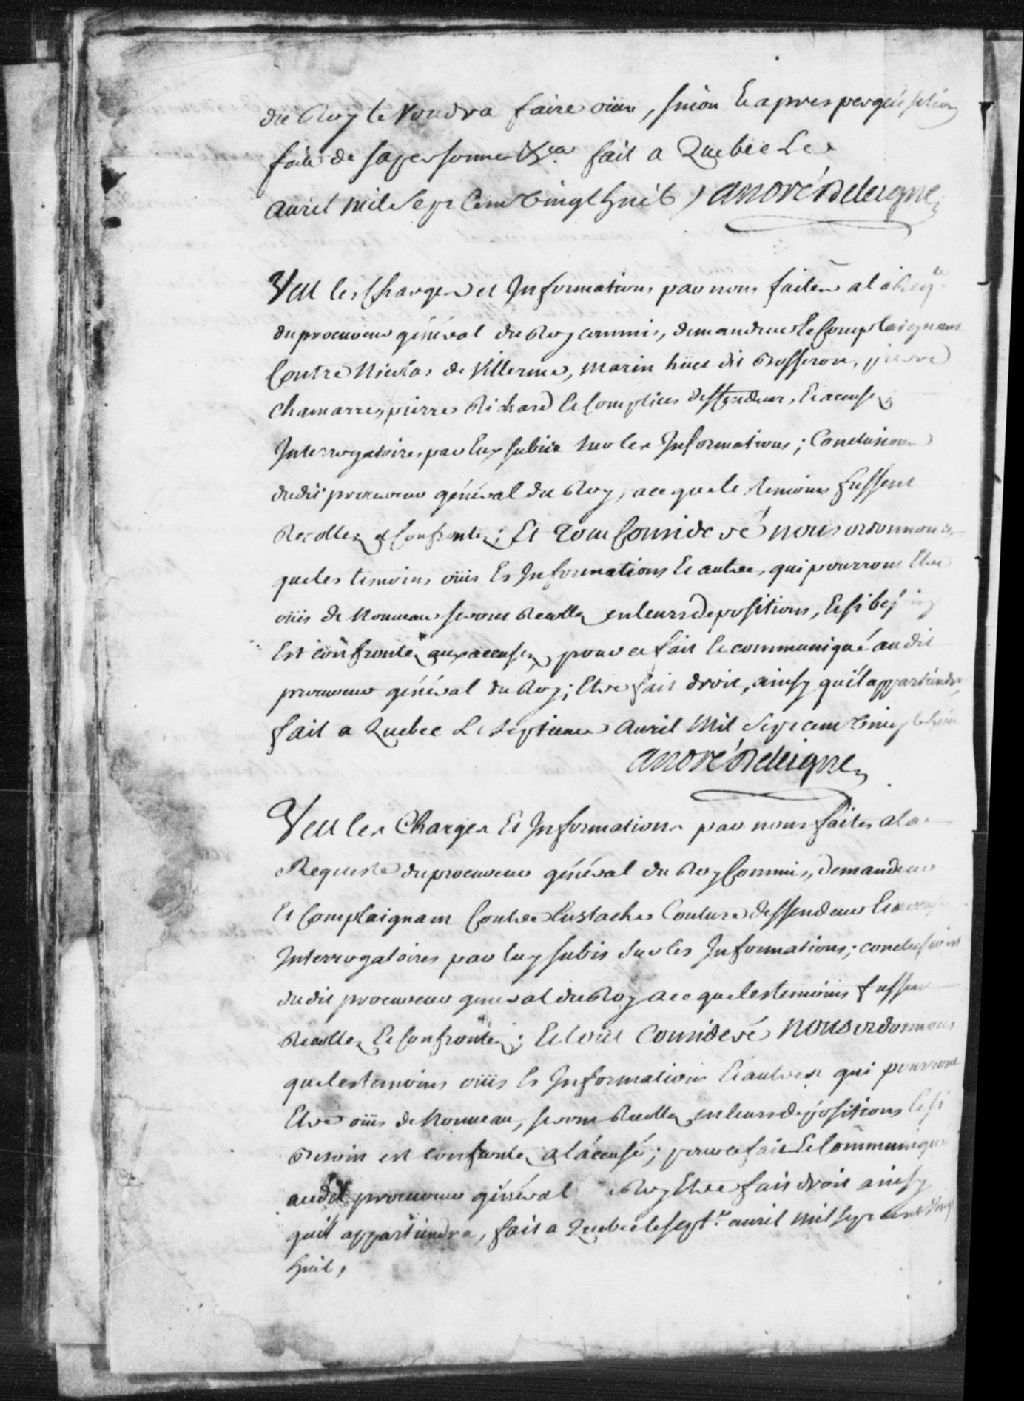 du Roy le voudra faire ouir, sinon Et apres perquisition
faite de sa personne &ca fait a Quebec Le
avril mil Sept Cent vingt huit / andré Deleigne
Veu les Charges et Informations par nous faites a la Reqte
du procureur général du Roy commis, demandeur Et Complaignant
Contre Nicolas de Villerme, marin hüet dit
Chamarre, pierre Richard Et Complices deffendeurs, Et accusez
Interrogatoires par Eux subis sur les Informations; Conclusions
dudit procureur général du Roy, a ce que le temoins fussent
Recollez et Confrontez; Et tout Considéré nous ordonnons
que les temoins ouis Es Informations Et autres, qui pourront Etre
ouis de Nouveau seront Recollez en leurs depositions, Et si besoin
Est confrontez aux accusez, pour ce fait Et communiqué audit
procureur général du Roy; Etre fait droit, ainsy qu'il appartiendra,
fait a Quebec Le Septieme avril Mil Sept cent vingt huit
andré Deleigne
Veu les Charges Et Informations par nous faites a la
Requeste du procureur général du Roy Commis, demandeur
Et Complaignant Contre Eustache Couture deffendeur Et accusé
Interrogatoires par luy subis sur les Informations; conclusions
dudit procureur general du Roy a ce que les temoins fussent
Recollez Et Confrontez; Et tout Considéré nous ordonnons
que les temoins ouis Es Informations Et autres qui pourront
Etre ouis de Nouveau, seront Recollez en leurs depositions Et si
Besoin est confrontez a l'accusé; pour ce fait Et Communiqué
audit procureur général Roy Etre fait droit ainsy
qu'il appartiendra, fait a Quebec le septe avril Mil Sept cent vingt
huit,